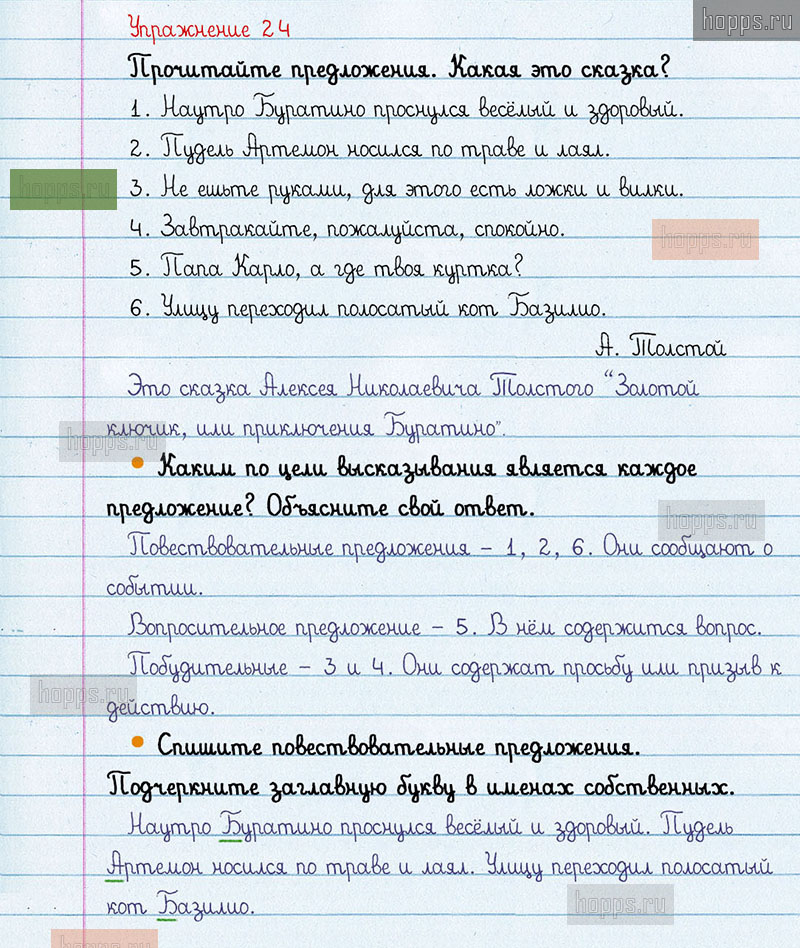 hopps.ru
Упражнение 24
Прочитайте предложения. Какая это сказка?
1. Наутро Буратино проснулся весёлый и здоровый.
2. Пудель Артемон носился по траве и лаял.
hopps.ru
3. Не ешьте руками, для этого есть ложки и вилки.
4. Завтракайте, пожалуйста, спокойно.
hopps.ru
5. Папа Карло, а где твоя куртка?
6. Улицу переходил полосатый кот Базилио.
А. Толстой
Это сказка Алексея Николаевича Толстого “Золотой
ключик, или приключения Буратино”.
hopps.ru
• Каким по цели высказывания является каждое
предложение? Объясните свой ответ.
hopps.ru
Повествовательные предложения – 1, 2, 6. Они сообщают о
событии.
Вопросительное предложение – 5. В нём содержится вопрос.
Побудительные – 3 и 4. Они содержат просьбу или призыв к
hopps.ru
действию.
• Спишите повествовательные предложения.
Подчеркните заглавную букву в именах собственных.
Наутро Буратино проснулся весёлый и здоровый. Пудель
Артемон носился по траве и лаял. Улицу переходил полосатый
кот Базилио.
hopps.ru
hopps.ru